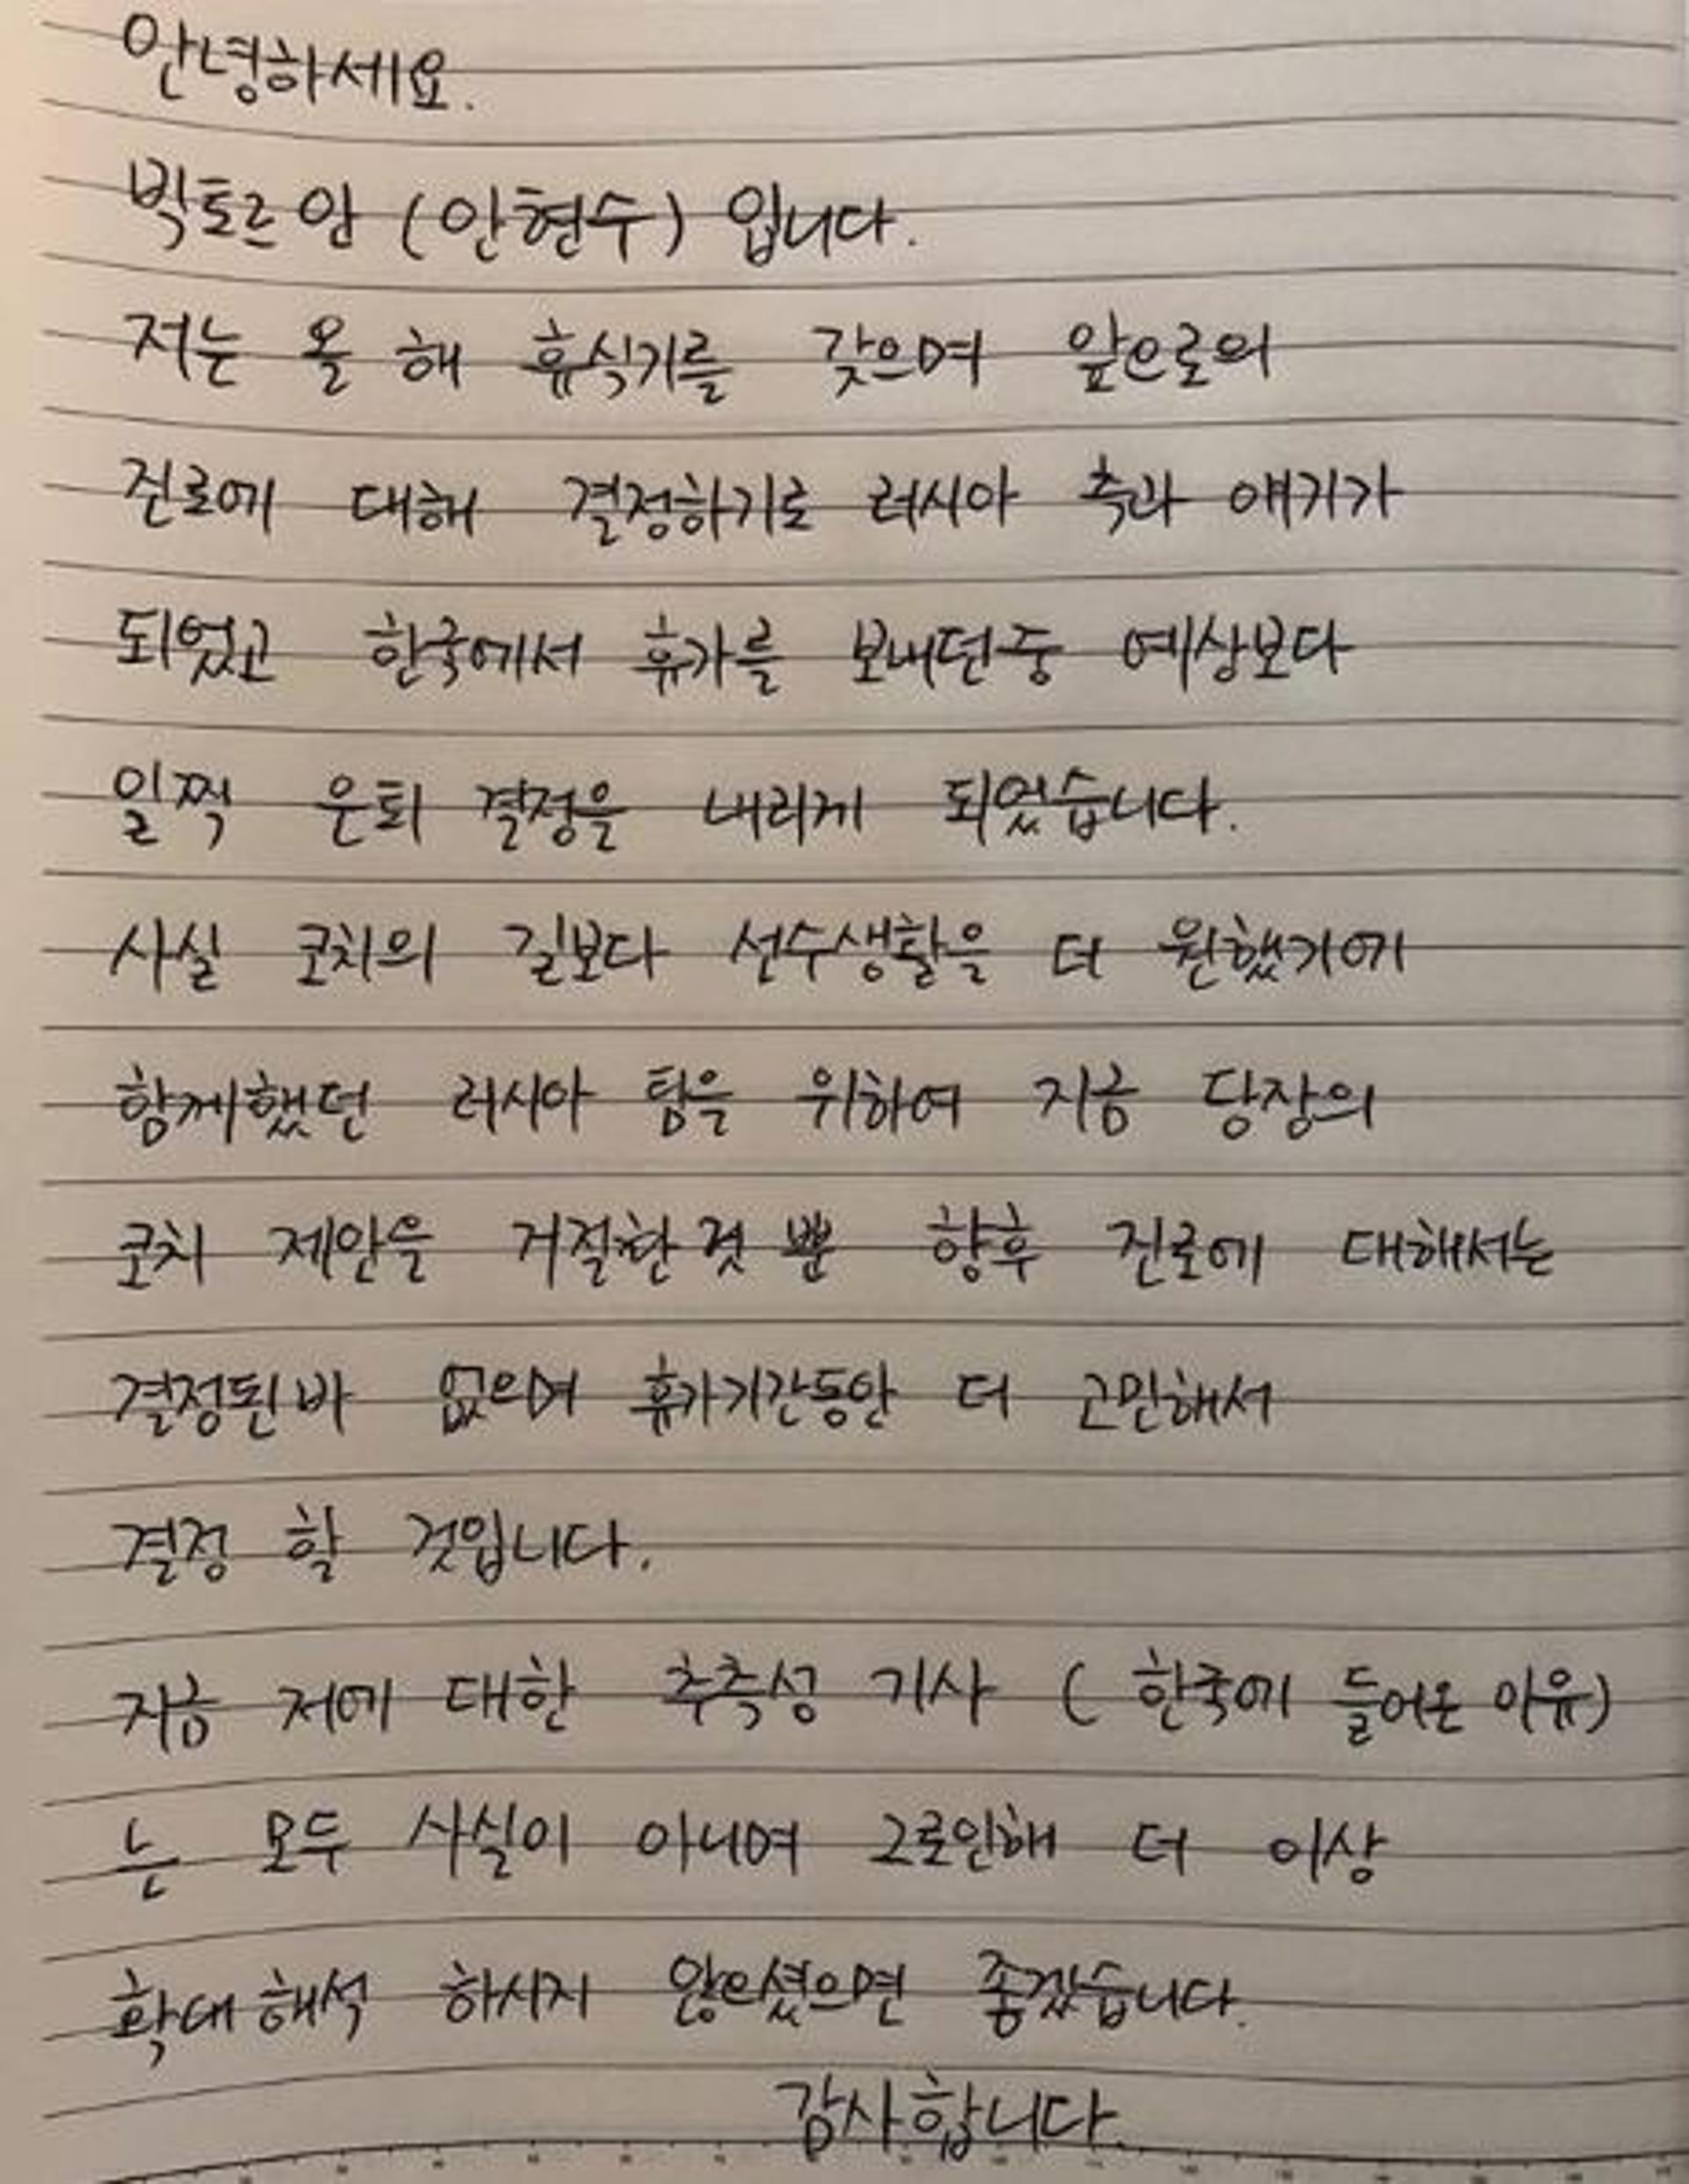 안녕하세요.
빅토르 안 (안현수) 입니다.
저는 올 해 휴식기를 갖으며 앞으로의
진로에 대해 결정하기로 러시아 측과 얘기가
되었고 한국에서 휴가를 보내던중 예상보다
일찍 은퇴 결정을 내리게 되었습니다.
사실 코치의 길보다 선수생활을 더 원했기에
함께했던 러시아 팀을 위하여 지금 당장의
코치 제안을 거절한 것 뿐 향후 진로에 대해서는
결정된 바 없으며 휴가기간동안 더 고민해서
결정 할 것입니다.
지금 저에 대한 추측성 기사 ( 한국에 들어온 이유)
는 모두 사실이 아니며 그로인해 더 이상
확대 해석 하시지 않으셨으면 좋겠습니다.
감사합니다.